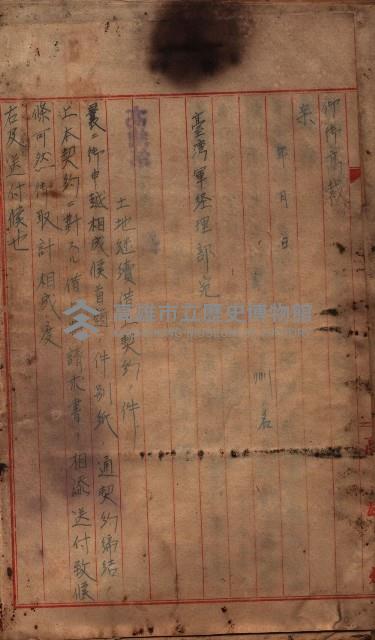 仰御高裁
案
年 月 日
臺灣軍経理部宛
州名
土地継續借上契約ノ件
曩ニ御申越相成候首題ノ件別紙ノ通契約締結ノ
上本契約ニ対スル借 請求書ノ相添送付致候
條可然御取計相成度
右及送付候也
高雄市立歷史博物館